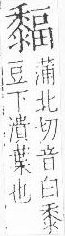 䵗
蒲北切音白黍
豆下潰葉也